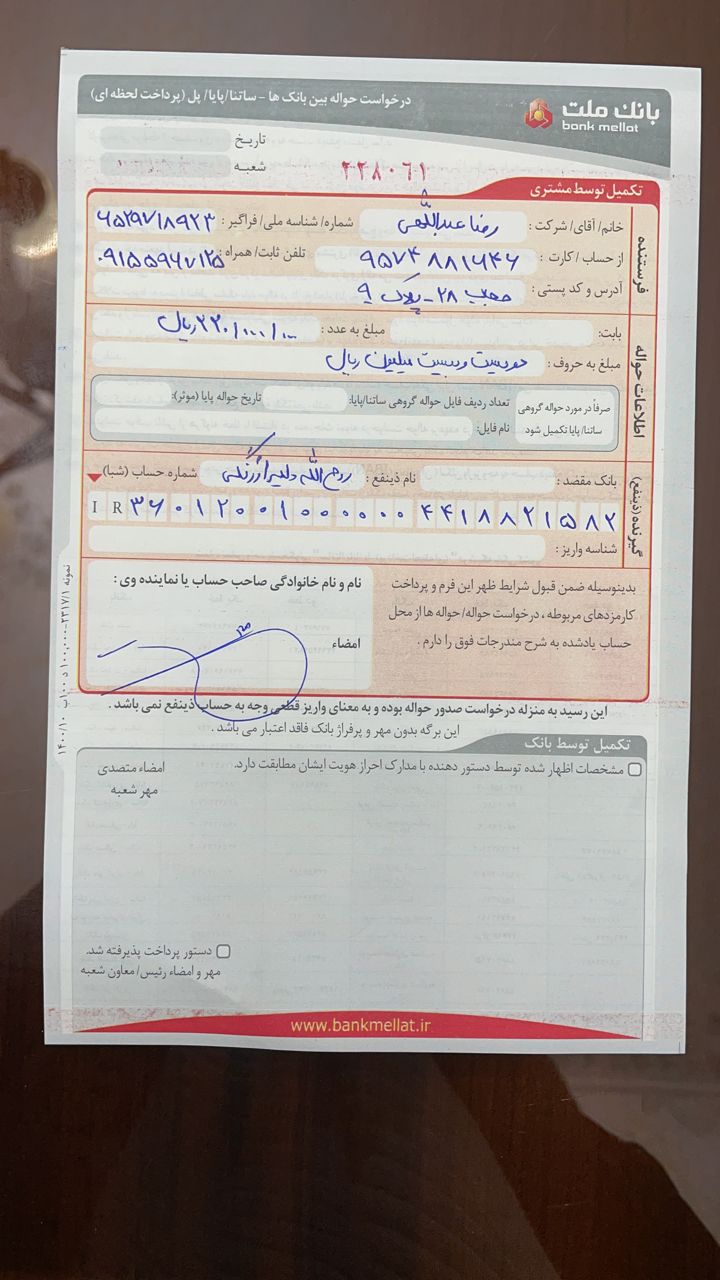 بانک ملت
bank mellat
درخواست حواله بین بانک ها - ساتنا/پایا/ پل (پرداخت لحظه ای)
تاریخ
شعبه
۲۲۸۰۶۱
تکمیل توسط مشتری
فرستنده
خانم/ آقای/ شرکت : رضا عبداللهی شماره/ شناسه ملی/ فراگیر : ۶۵۲۹۷۱۸۹۲۳
از حساب / کارت : ۹۵۷۴۸۸۱۶۴۶ تلفن ثابت/ همراه : ۰۹۱۵۵۹۶۷۱۲۵
آدرس و کد پستی : ۲۸ - پلاک ۹
اطلاعات حواله
بابت: مبلغ به عدد : ۲۲۰/۰۰۰/۰۰۰ ریال
مبلغ به حروف : دویست و بیست میلیون ریال
صرفاً در مورد حواله گروهی ساتنا/ پایا تکمیل شود
تعداد ردیف فایل حواله گروهی ساتنا/پایا: تاریخ حواله پایا (موثر):
نام فایل:
گیرنده (ذینفع)
بانک مقصد : نام ذینفع : روح اللّه شماره حساب (شبا)
IR ۳۶۰۱۲۰۰۱۰۰۰۰۰۰۴۴۱۸۸۲۱۵۸۲
شناسه واریز :
بدینوسیله ضمن قبول شرایط ظهر این فرم و پرداخت
کارمزدهای مربوطه ، درخواست حواله/ حواله ها از محل
حساب یادشده به شرح مندرجات فوق را دارم .
نام و نام خانوادگی صاحب حساب یا نماینده وی :
امضاء
این رسید به منزله درخواست صدور حواله بوده و به معنای واریز قطعی وجه به حساب ذینفع نمی باشد .
این برگه بدون مهر و پرفراژ بانک فاقد اعتبار می باشد .
تکمیل توسط بانک
مشخصات اظهار شده توسط دستور دهنده با مدارک احراز هویت ایشان مطابقت دارد.
امضاء متصدی
مهر شعبه
دستور پرداخت پذیرفته شد.
مهر و امضاء رئیس/ معاون شعبه
www.bankmellat.ir
نمونه ۲۳۱۷/۱-۱۰۰.۰۰۰ د ۱۰۰ب ۱۴۰۰/۱۰